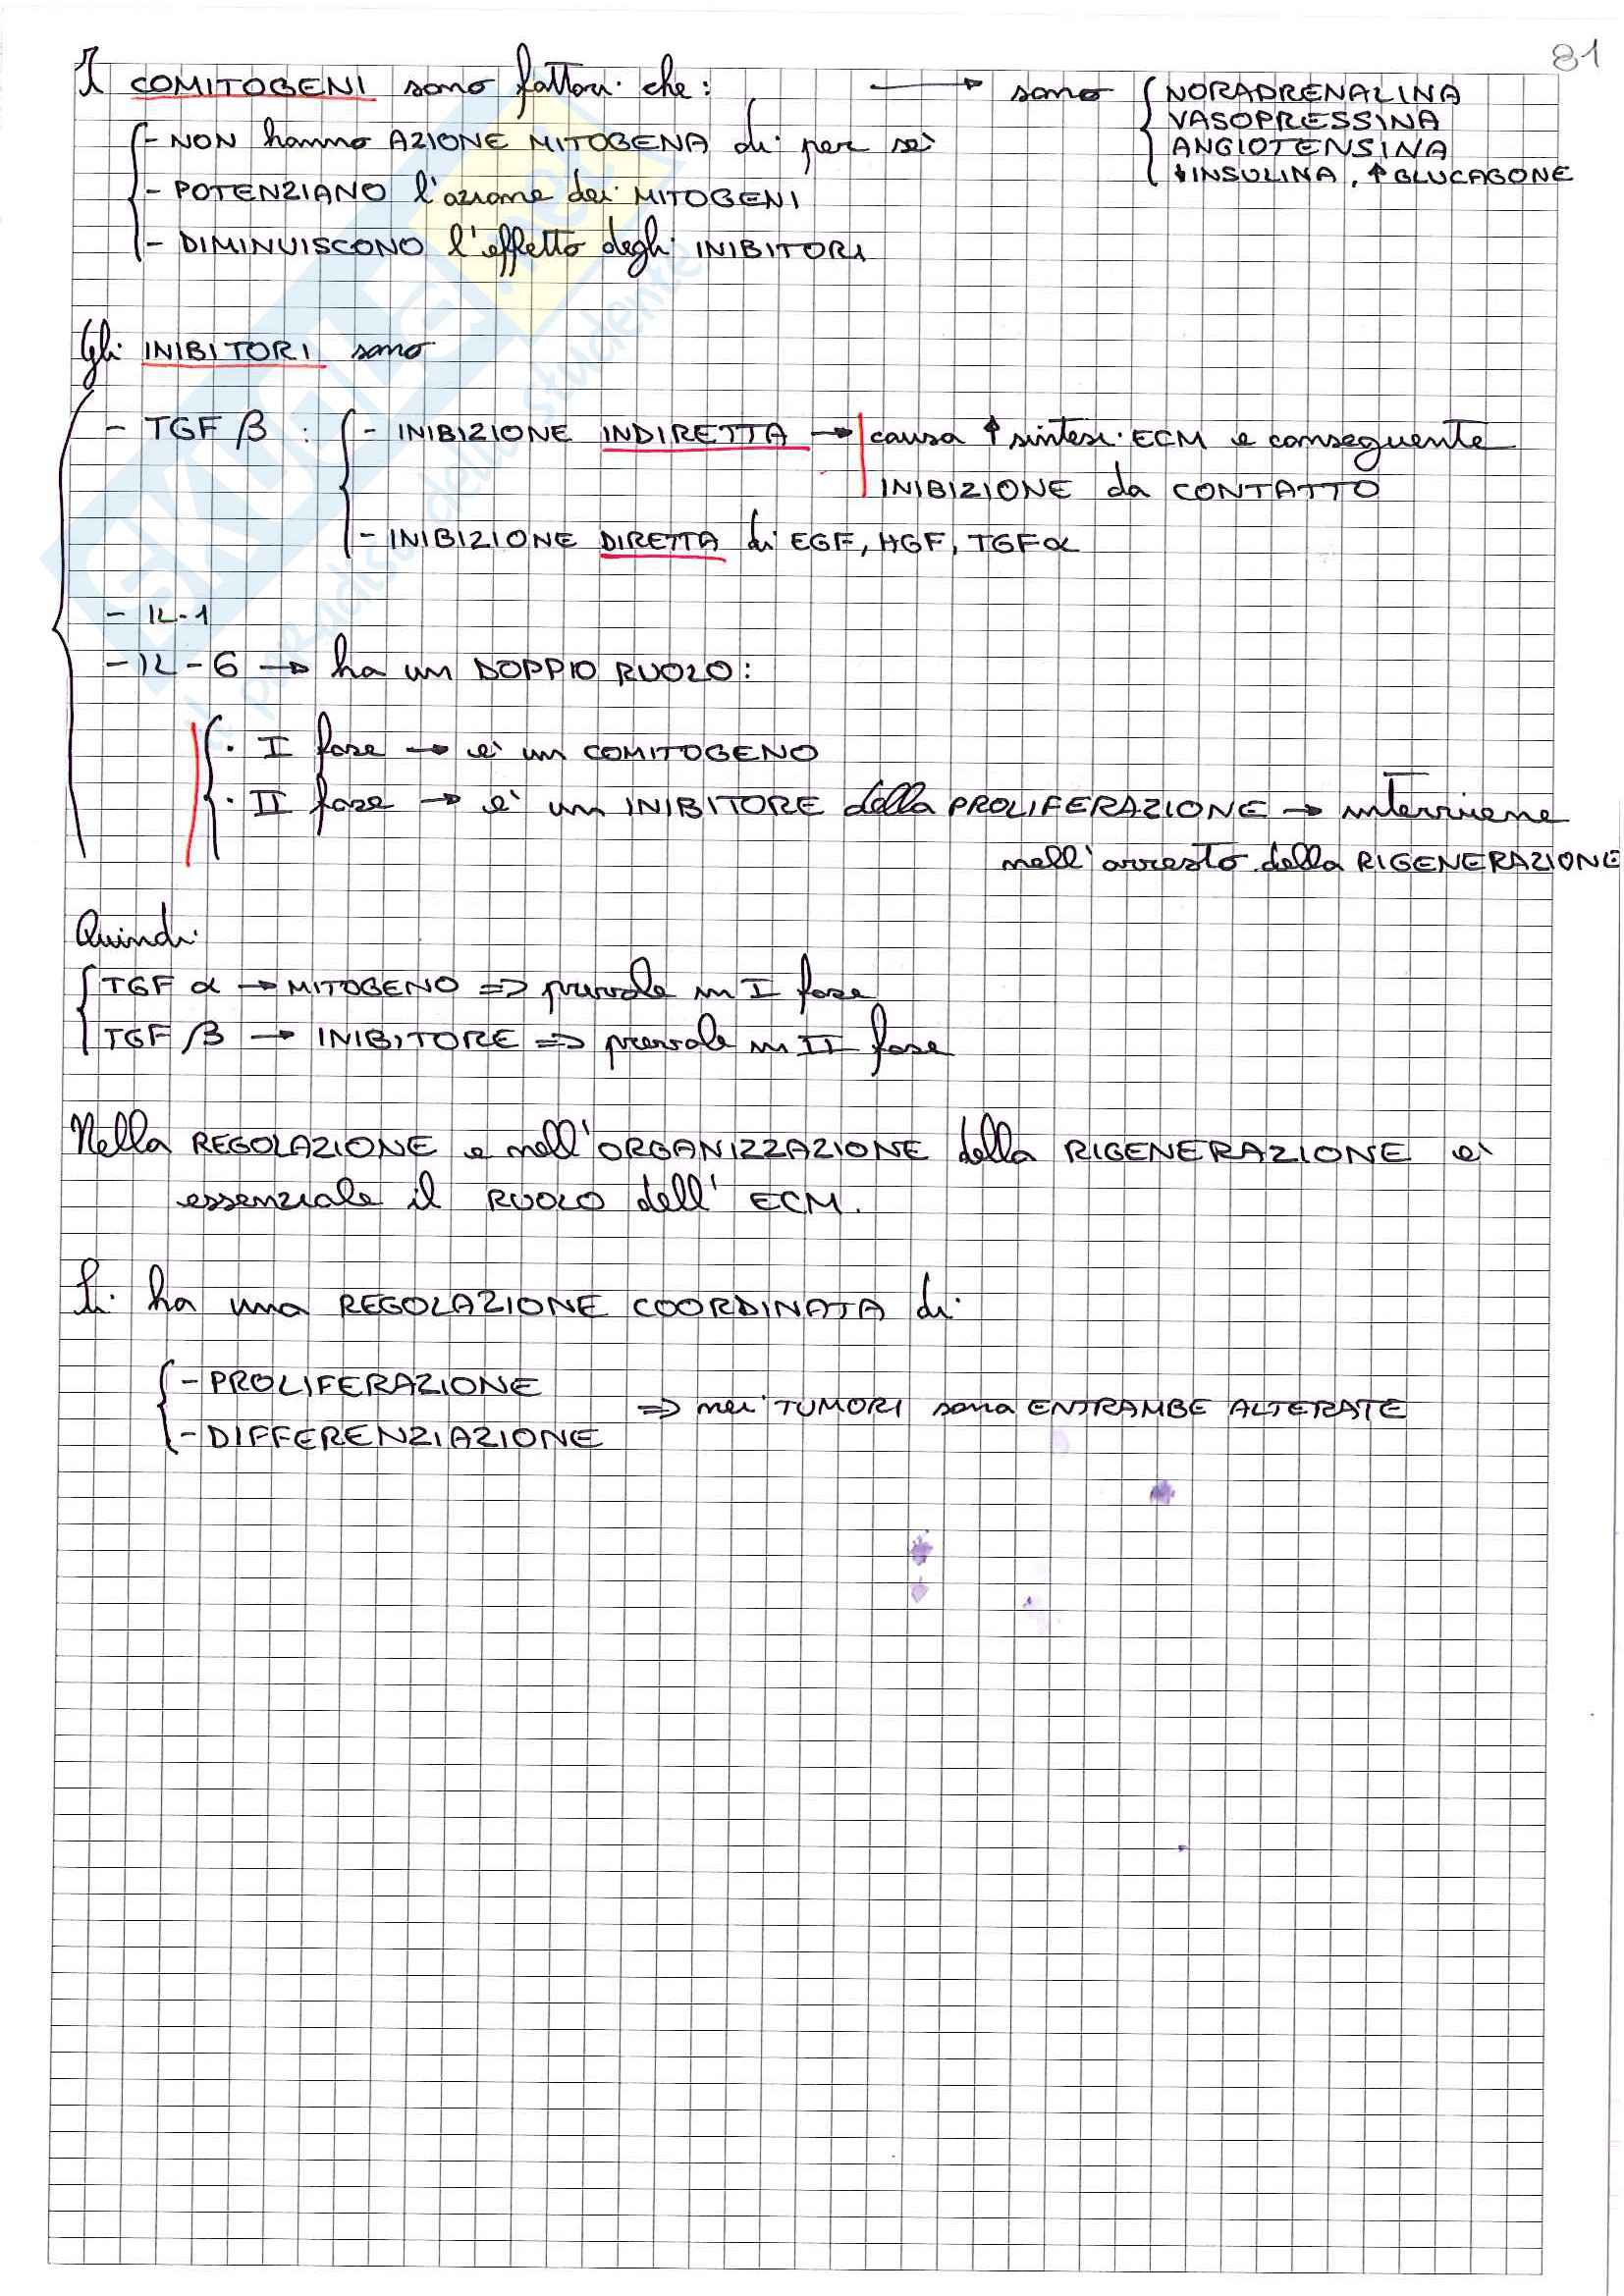 81
I COMITOGENI sono fattori che: → sono { NORADRENALINA
VASOPRESSINA
ANGIOTENSINA
↓INSULINA, ↑GLUCAGONE
- NON hanno AZIONE MITOGENA di per sè
- POTENZIANO l'azione dei MITOGENI
- DIMINUISCONO l'effetto degli INIBITORI
Gli INIBITORI sono
- TGF β : { - INIBIZIONE INDIRETTA → causa ↑ sintesi ECM e conseguente
INIBIZIONE da CONTATTO
- INIBIZIONE DIRETTA di EGF, HGF, TGFα
- IL-1
- IL-6 → ha un DOPPIO RUOLO:
· I fase → è un COMITOGENO
· II fase → è un INIBITORE della PROLIFERAZIONE → interviene
nell'arresto della RIGENERAZIONE
Quindi
TGF α → MITOGENO ⇒ prevale in I fase
TGF β → INIBITORE ⇒ prevale in II fase
Nella REGOLAZIONE e nell'ORGANIZZAZIONE della RIGENERAZIONE è
essenziale il RUOLO dell' ECM.
Si ha una REGOLAZIONE COORDINATA di
- PROLIFERAZIONE
⇒ nei TUMORI sono ENTRAMBE ALTERATE
- DIFFERENZIAZIONE
SKUOLA.net
il paradiso dello studente